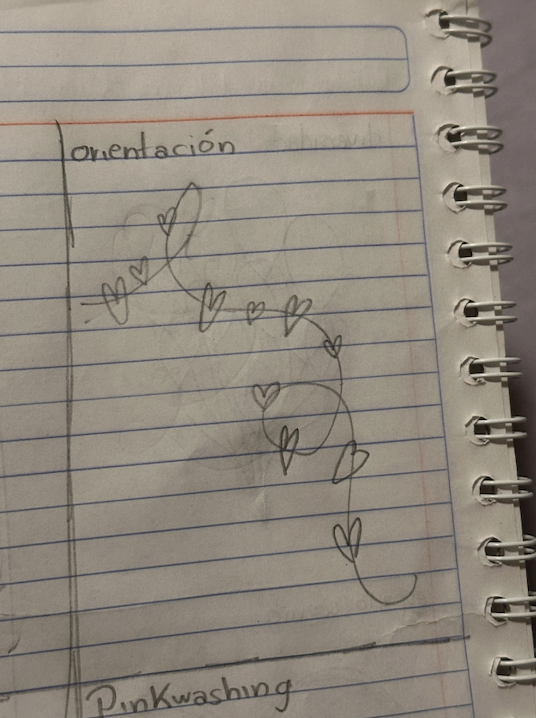 orientación
Pinkwashing